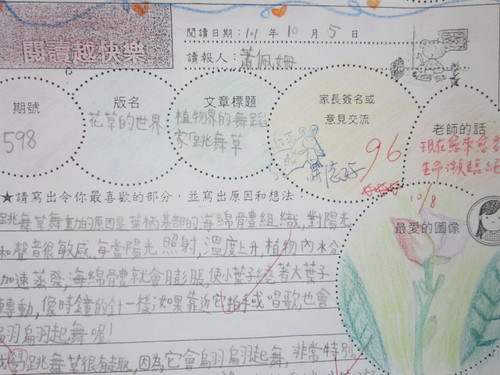 閱讀越快樂
閱讀日期：101年10月5日
讀報人：蕭佩姍
期號
598
版名
花草的世界
文章標題
植物界的舞蹈
家跳舞草
家長簽名或
意見交流
96
老師的話
現在
生命
10/8
最愛的圖像
★請寫出令你最喜歡的部分，並寫出原因和想法
跳舞草舞動的原因是葉柄基部的海綿囊組織，對陽光
和聲音很敏感，每當陽光照射，溫度上升，植物內水分
加速蒸發，海綿體囊就會膨脹，使小葉子繞著大葉子
轉動，像時鐘的針一樣；如果靠近它拍手或唱歌，也會
扇羽扇羽起舞喔！
跳舞草很有趣，因為它會扇羽扇羽起舞，非常特別